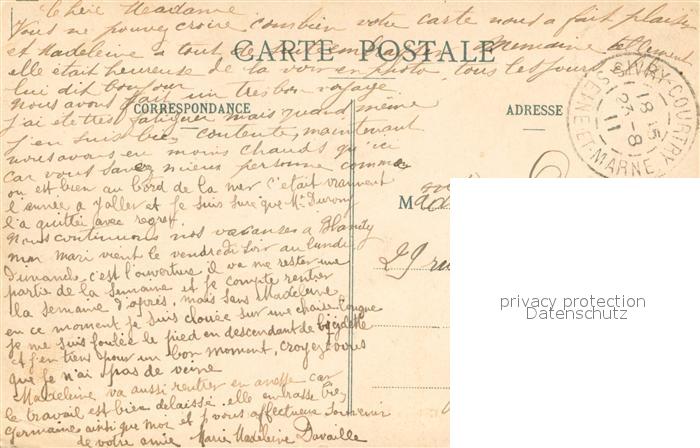 Chère Madame
Vous ne pouvez croire combien votre carte nous a fait plaisir
et Madeleine a tout de suite embrassé Memaine
elle était heureuse de la voir en photo tous les jours
lui dit bonjour
CARTE POSTALE
CORRESPONDANCE
ADRESSE
Nous avons fait un tres bon voyage
J'ai été très fatiguée mais quand même
J'en suis bien contente, maintenant
nous avons eu moins chaud qu'ici
car vous savez mieux personne comme
on est bien au bord de la mer c'était vraiment
l'année a y aller et je suis sure que Me
l'a quittée avec regret
Nous continuons nos vacances a Blandy
mon mari vient le vendredi soir au lundi
Dimanche c'est l'ouverture il va me rester une
partie de la semaine et je compte rentrer
la semaine d'après, mais sans Madeleine
en ce moment je suis clouée sur une chaise longue
je me suis foulée le pied en descendant de bicyclette
et j'en tiens pour un bon moment, croyez vous
que je n'ai pas de veine
Madeleine va aussi rentrer en classe car
le travail est bien délaissé elle embrasse bien
Germaine ainsi que moi et vous affectueux souvenir
de votre amie Marie Madeleine Davaille
SIVRY-COURTRY
18 15
23-8
11
SEINE-ET-MARNE
M
29 rue
privacy protection
Datenschutz